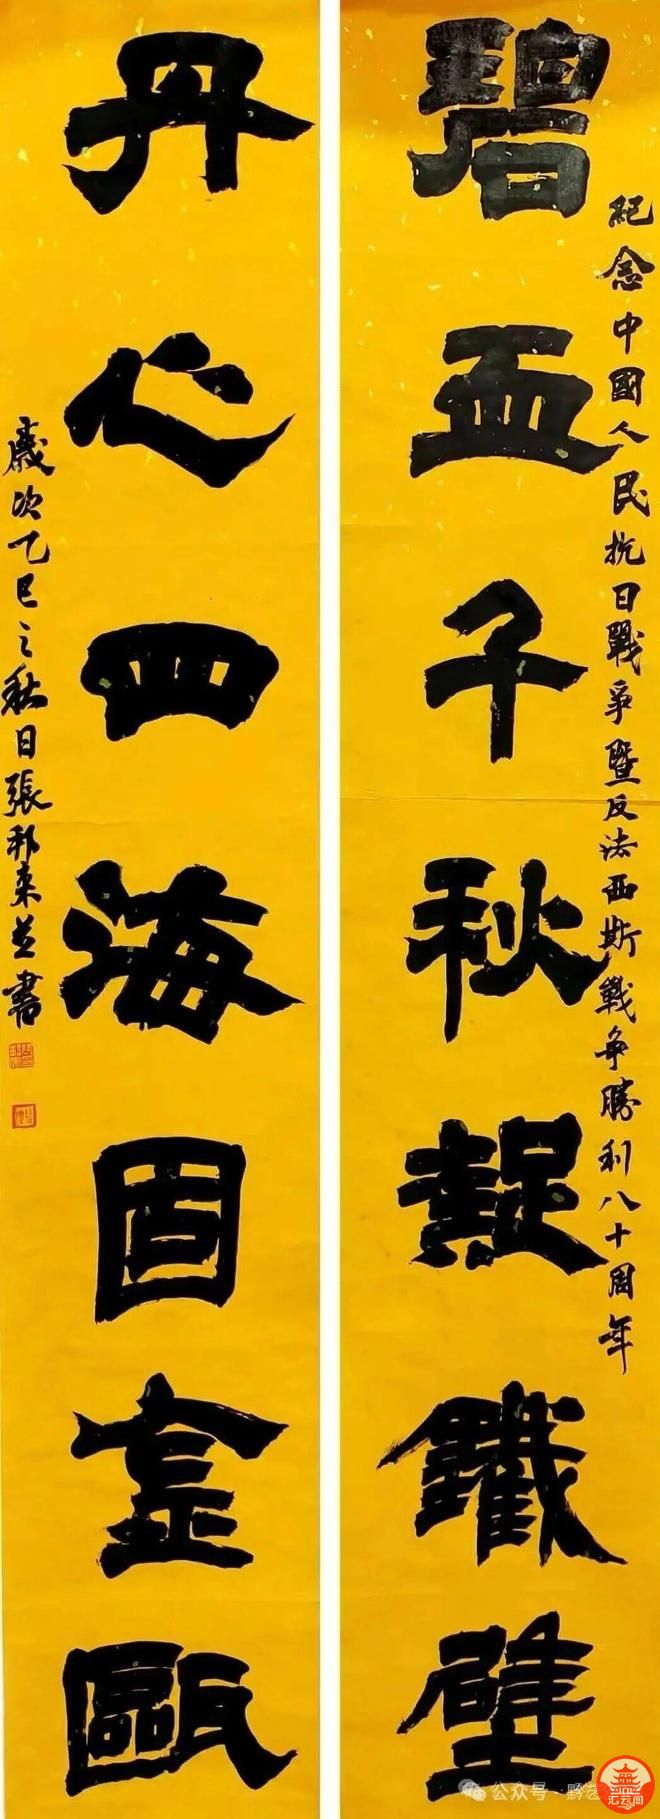 紀念中國人民抗日戰爭暨反法西斯戰爭勝利八十周年
碧血千秋鐵壁
丹心四海固金甌
歲次乙巳之秋日張邦書
公众号·黔艺
汇云阁